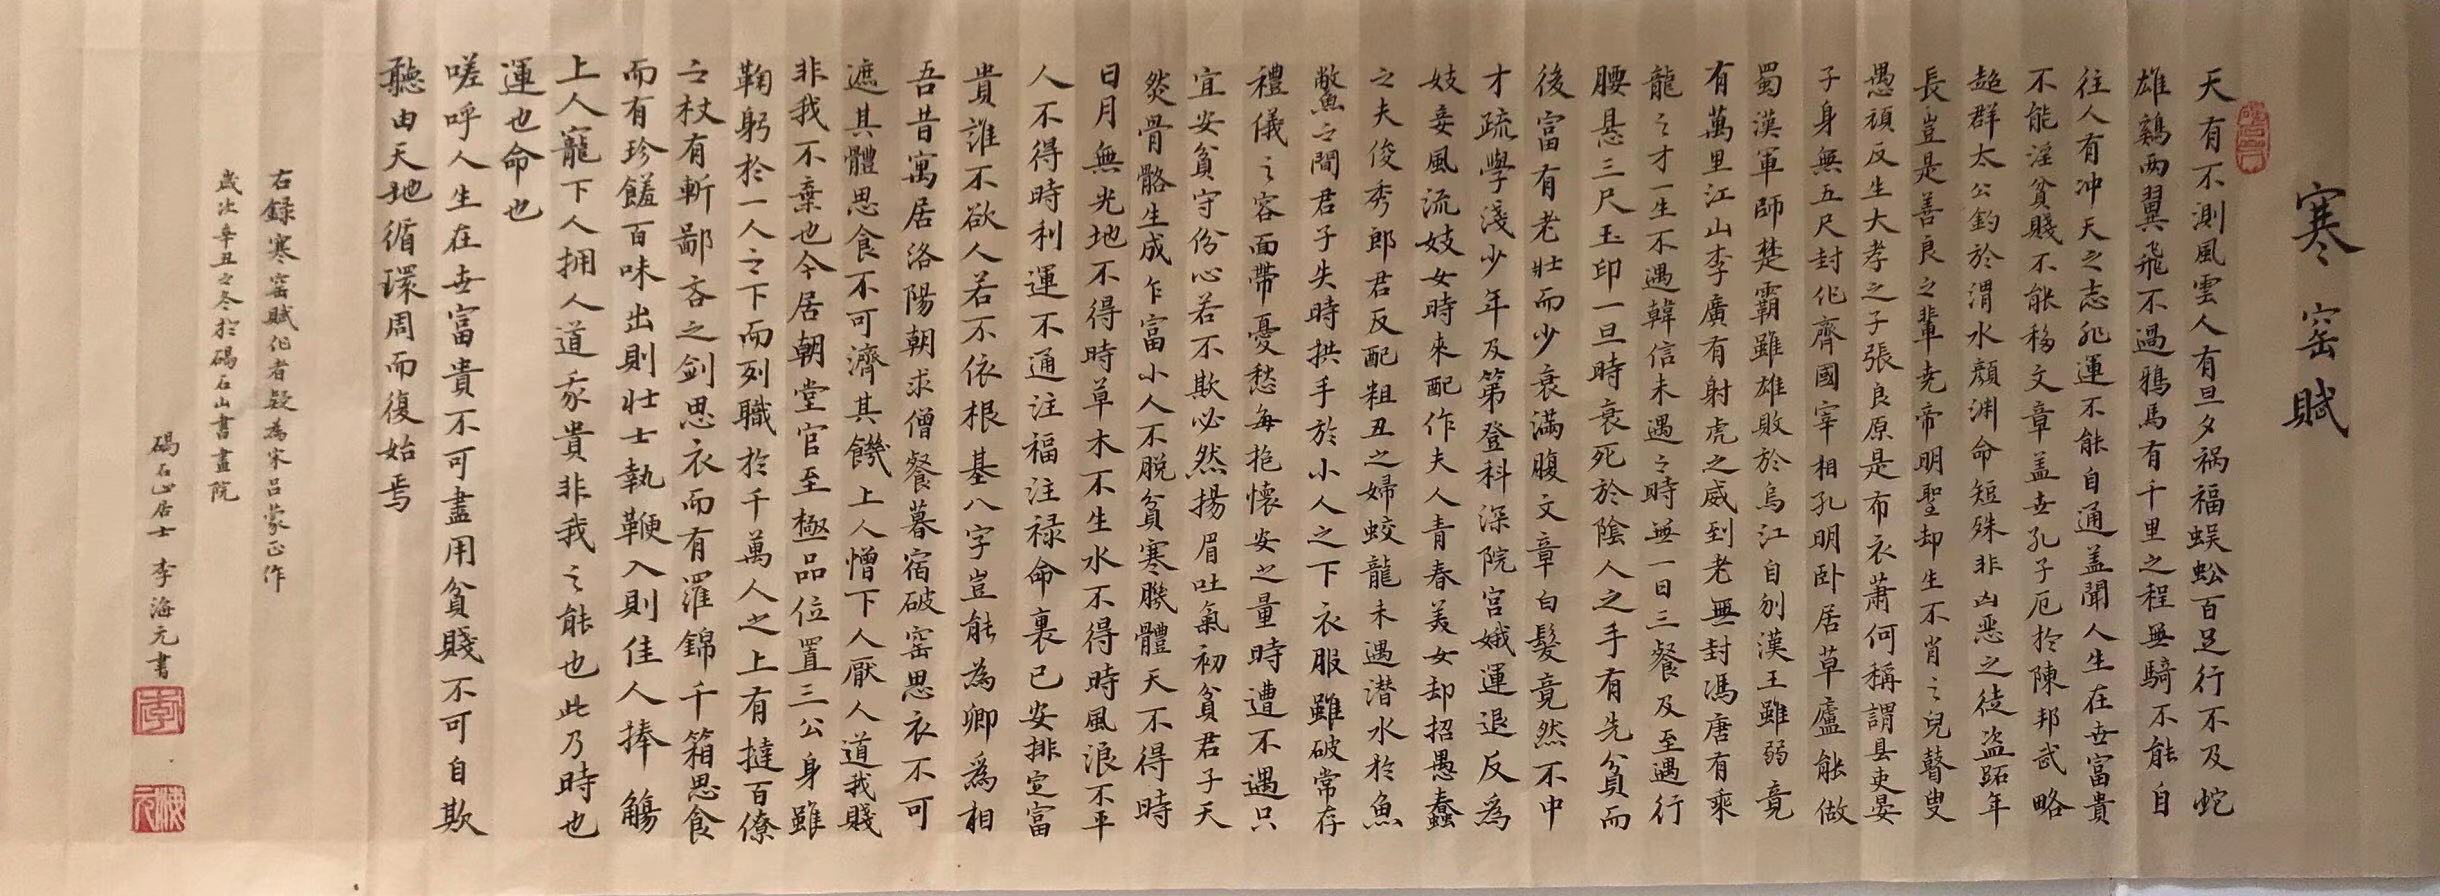 寒窑賦
天有不測風雲人有旦夕祸福蜈蚣百足行不及蛇
雄鷄两翼飛不過鴉馬有千里之程無騎不能自
往人有冲天之志非運不能自通盖聞人生在世富貴
不能淫貧賤不能移文章盖世孔子厄於陳邦武略
超群太公釣於渭水顔渊命短殊非凶惡之徒盗跖年
長豈是善良之輩尭帝明聖却生不肖之兒瞽叟
愚頑反生大孝之子張良原是布衣萧何稱謂县吏晏
子身無五尺封作齊國宰相孔明卧居草廬能做
蜀漢軍師楚霸雖雄敗於烏江自刎漢王雖弱竟
有萬里江山李廣有射虎之威到老無封馮唐有乘
龍之才一生不遇韓信未遇之時無一日三餐及至遇行
腰悬三尺玉印一旦時衰死於陰人之手有先貧而
後富有老壮而少衰滿腹文章白髮竟然不中
才疏學淺少年及第登科深院宫娥運退反為
妓妾風流妓女時來配作夫人青春美女却招愚蠢
之夫俊秀郎君反配粗丑之婦蛟龍未遇潜水於魚
鱉之間君子失時拱手於小人之下衣服雖破常存
禮儀之容面帶憂愁每抱懷安之量時遭不遇只
宜安貧守份心若不欺必然揚眉吐氣初貧君子天
然骨骼生成乍富小人不脱貧寒肌體天不得時
日月無光地不得時草木不生水不得時風浪不平
人不得時利運不通注福注禄命裏已安排定富
貴誰不欲人若不依根基八字豈能為卿爲相
吾昔寓居洛陽朝求僧餐暮宿破窑思衣不可
遮其體思食不可濟其饑上人憎下人厭人道我賤
非我不棄也今居朝堂官至極品位置三公身雖
鞠躬於一人之下而列職於千萬人之上有撻百僚
之杖有斬鄙吝之劍思衣而有羅錦千箱思食
而有珍饈百味出則壮士執鞭入則佳人捧觴
上人寵下人拥人道我貴非我之能也此乃時也
運也命也
嗟呼人生在世富貴不可盡用貧賤不可自欺
聽由天地循環周而復始焉
右録寒窑賦作者疑為宋吕蒙正作
歲次辛丑之冬於碣石山書畫院
碣石山居士 李海元書